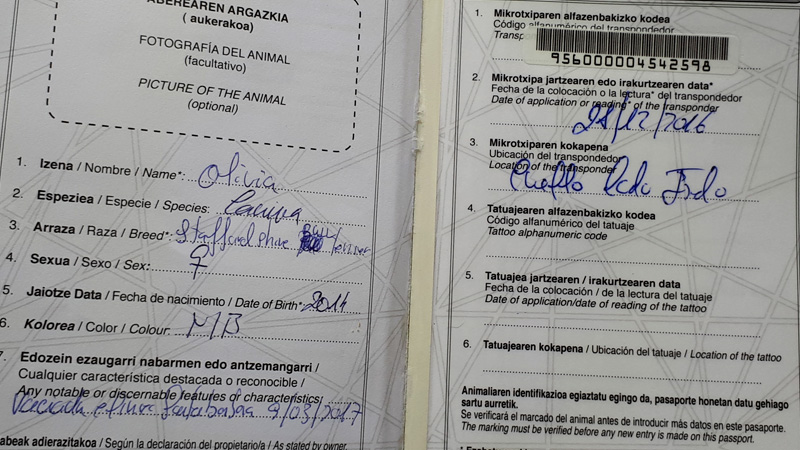 ABEREAREN ARGAZKIA
( aukerakoa)
FOTOGRAFÍA DEL ANIMAL
(facultativo)
PICTURE OF THE ANIMAL
(optional)
1. Izena / Nombre / Name*: Olivia
2. Espeziea / Especie / Species: Canina
3. Arraza / Raza / Breed*: Staffordshire Bull terrier
4. Sexua / Sexo / Sex: ♀
5. Jaiotze Data / Fecha de nacimiento / Date of Birth*: 2014
6. Kolorea / Color / Colour: MB
7. Edozein ezaugarri nabarmen edo antzemangarri /
Cualquier característica destacada o reconocible /
Any notable or discernable features or characteristics
9/03/2017
abeak adierazitakoa / Según la declaración del propietario/a / As stated by owner.
1. Mikrotxiparen alfazenbakizko kodea
Código alfanumérico del transpondedor
Transp
956000004542598
2. Mikrotxipa jartzearen edo irakurtzearen data*
Fecha de la colocación o la lectura* del transpondedor
Date of application or reading* of the transponder
21/12/2016
3. Mikrotxiparen kokapena
Ubicación del transpondedor
Location of the transponder
Cuello lado Izdo
4. Tatuajearen alfazenbakizko kodea
Código alfanumérico del tatuaje
Tattoo alphanumeric code
5. Tatuajea jartzearen / irakurtzearen data
Fecha de la colocación / de la lectura del tatuaje
Date of application/date of reading of the tattoo
6. Tatuajearen kokapena / Ubicación del tatuaje / Location of the tattoo
Animaliaren identifikazioa egiaztatu egingo da, pasaporte honetan datu gehiago
sartu aurretik.
Se verificará el marcado del animal antes de introducir más datos en este pasaporte.
The marking must be verified before any new entry is made on this passport.